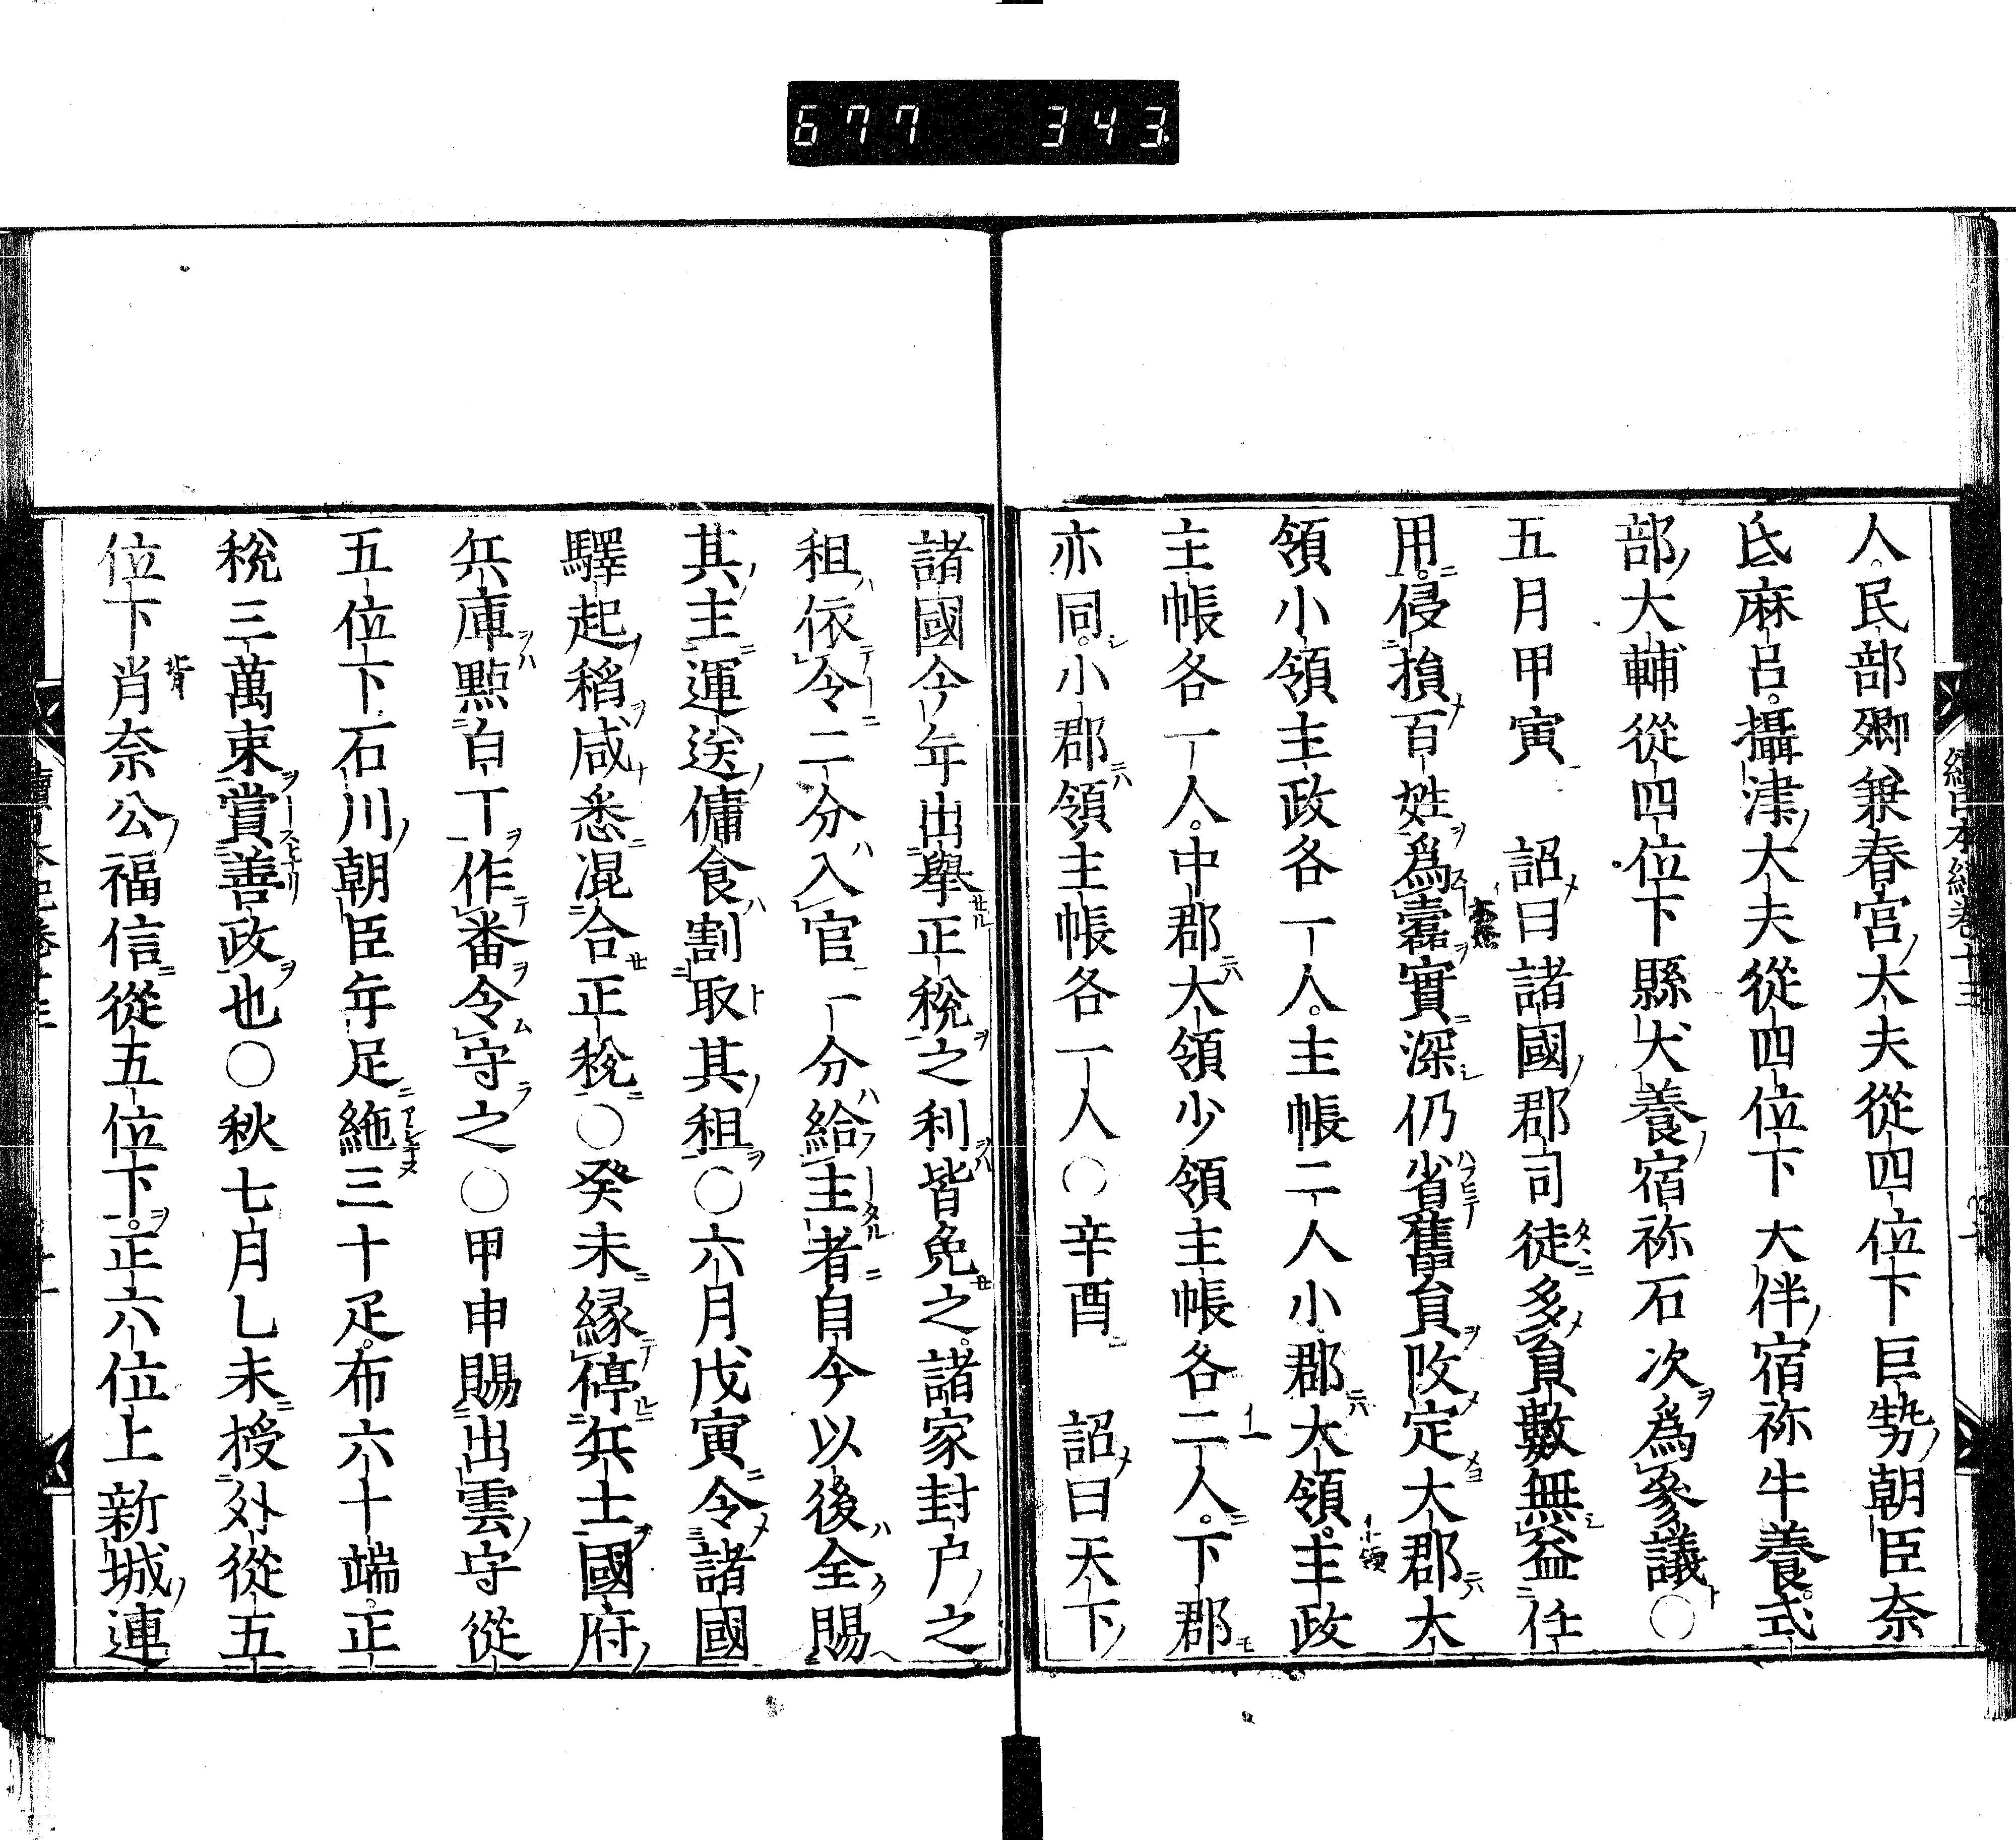 677 343
人。民部卿兼春宮大夫從四位下巨勢朝臣奈
氐麻呂。攝津大夫從四位下大伴宿祢牛養。式
部大輔從四位下縣犬養宿祢石次爲參議○
五月甲寅 詔曰諸國郡司徒多員數無益任
用。侵損百姓爲蠧實深仍省舊員改定大郡大
領小領主政各一人。主帳二人小郡大領。主政
主帳各一人。中郡大領少領主帳各二人。下郡
亦同。小郡領主帳各一人○辛酉 詔曰天下
諸國今年出擧正稅之利皆免之。諸家封户之
租依令二分入官一分給主者自今以後全賜
其主運送傭食割取其租○六月戊寅令諸國
驛起稻咸悉混合正稅○癸未緣停兵士國府
兵庫點白丁作番令守之○甲申賜出雲守從
五位下石川朝臣年足絁三十疋。布六十端。正
稅三萬束賞善政也○秋七月乚未授外從五
位下肖奈公福信從五位下。正六位上新城連